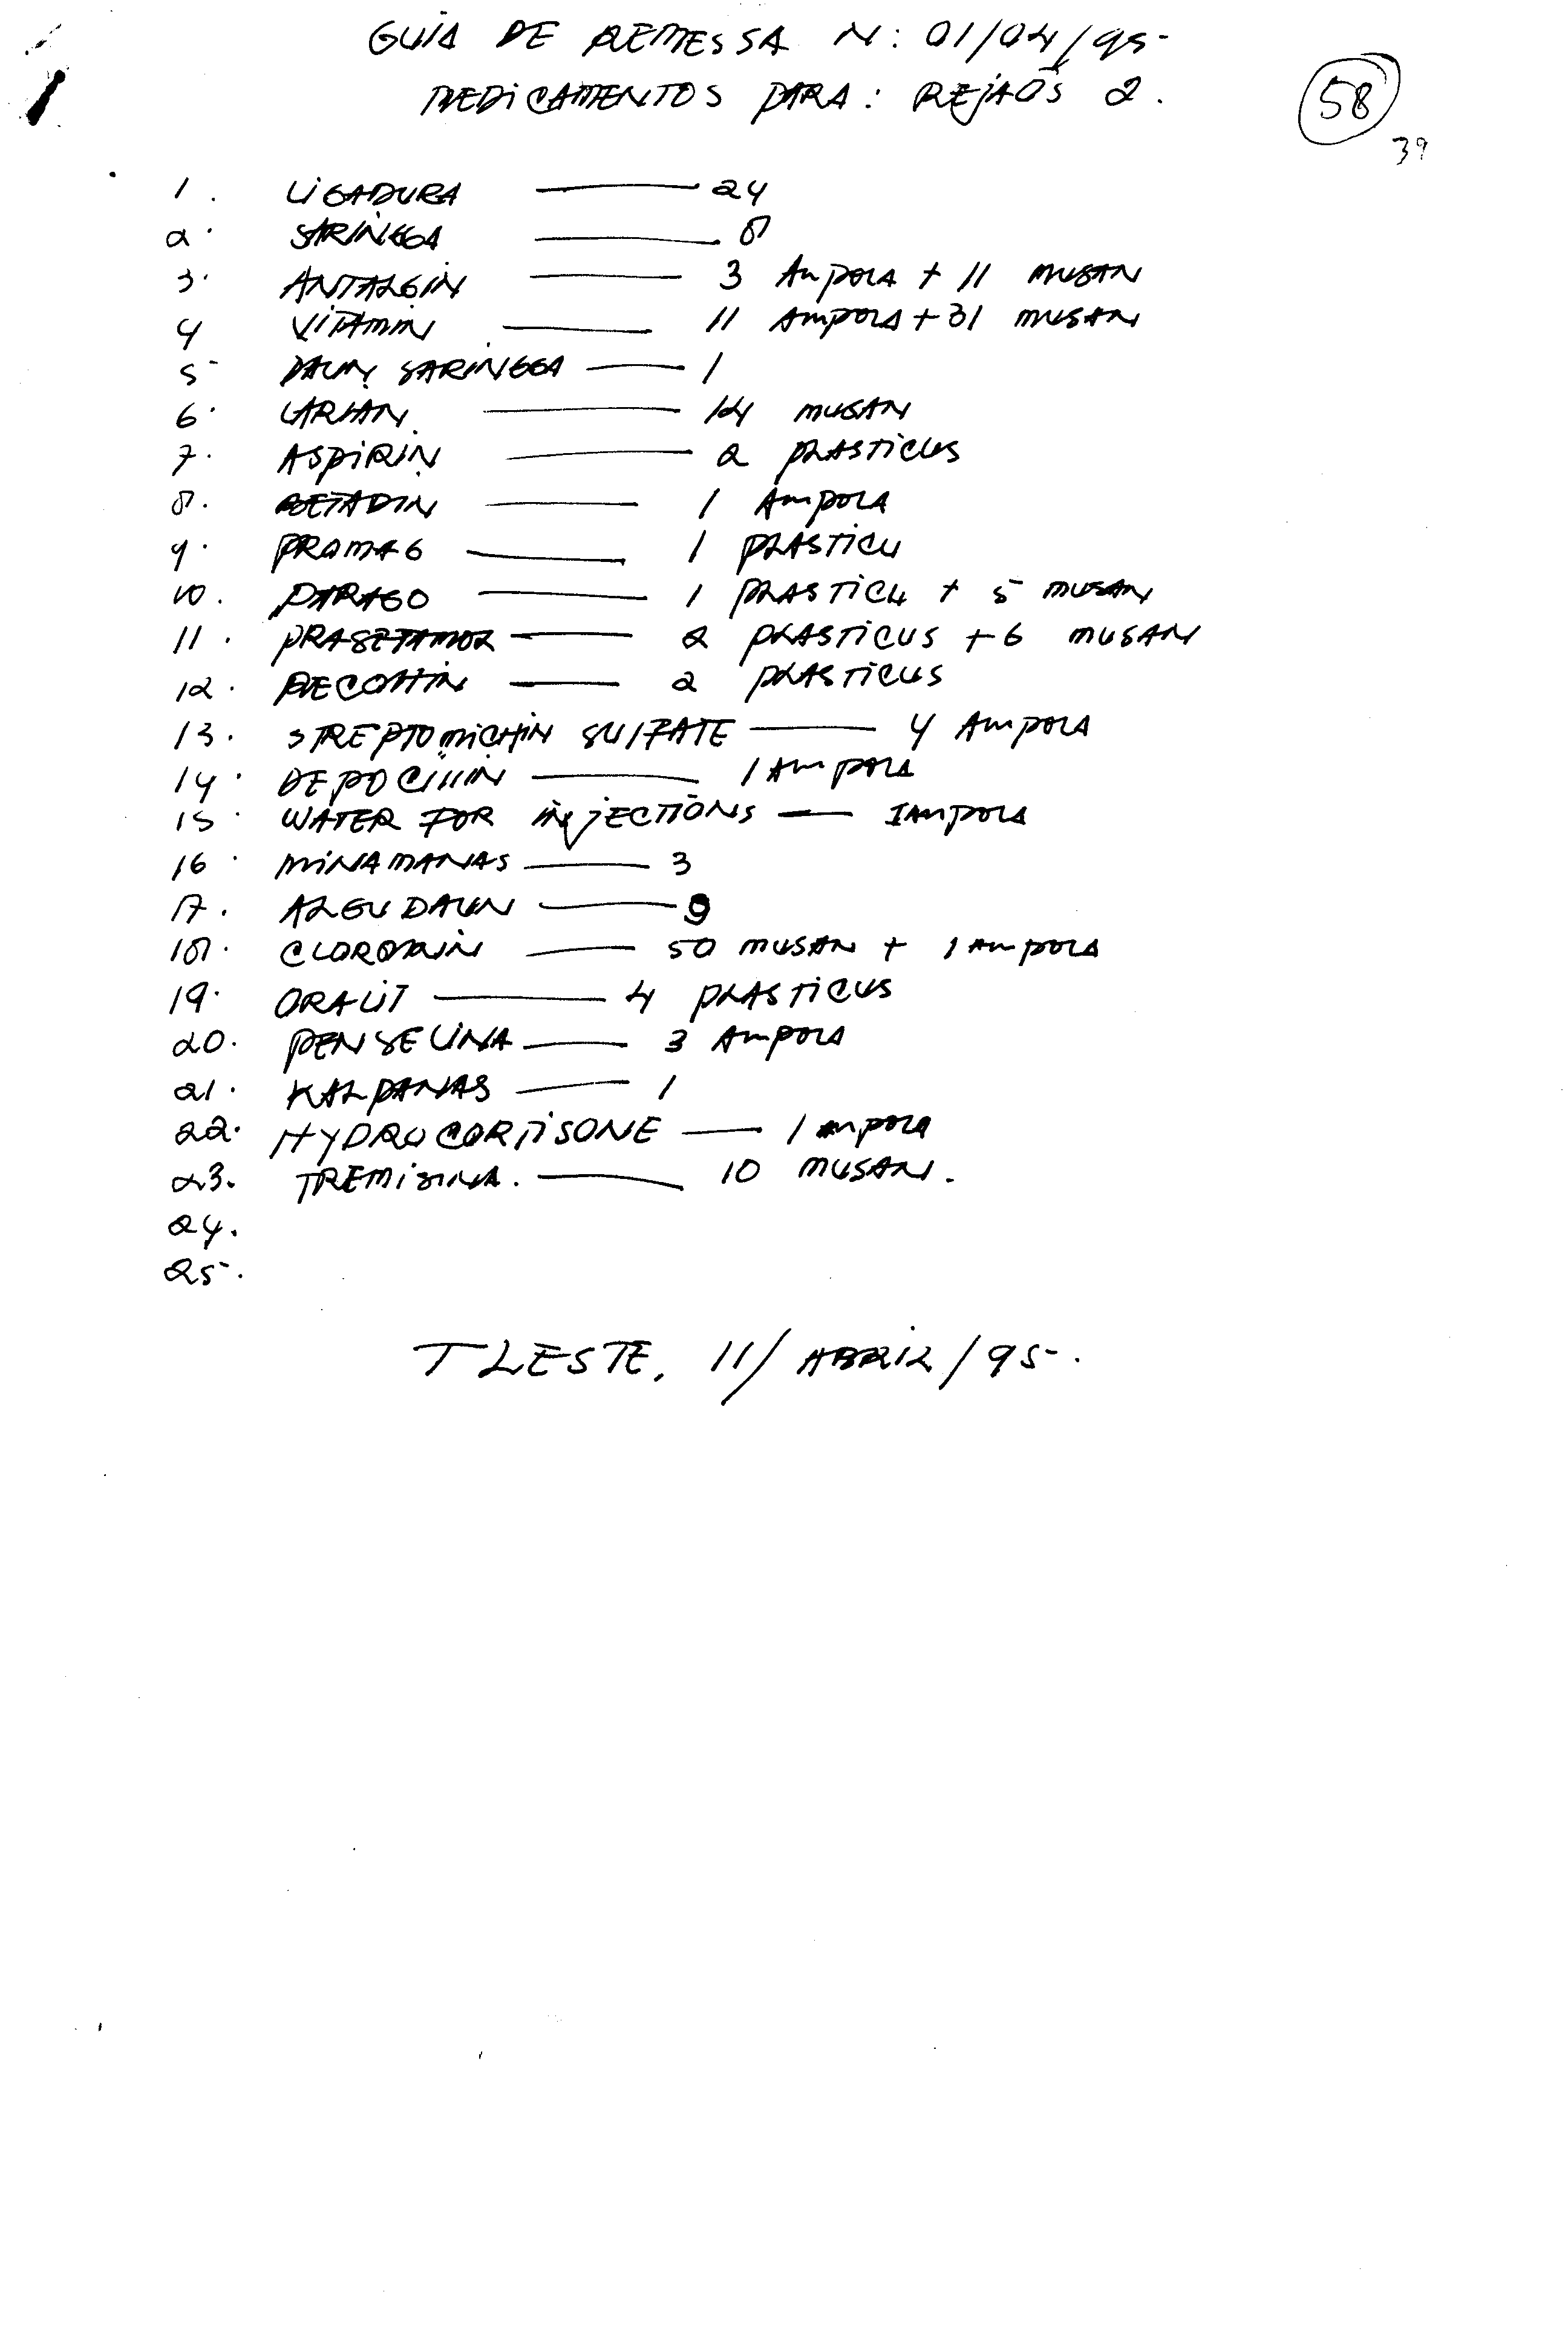 GUIA DE REMESSA N: 01/04/95
MEDICAMENTOS PARA: REJAÕS 2.
58
39
1. LIGADURA — 24
2. SARINGGA — 8
3. ANTALGIN — 3 AMPOLA + 11 MUSAN
4 VITAMIN — 11 AMPOLA + 31 MUSAN
5 DAUN SARINGGA — 1
6. LARIAN — 14 MUSAN
7. ASPIRIN — 2 PLASTICUS
8. BETADIN — 1 AMPOLA
9. PROMAG — 1 PLASTICU
10. PARAGO — 1 PLASTICU + 5 MUSAN
11. PRASETAMOL — 2 PLASTICUS + 6 MUSAN
12. DECOHIN — 2 PLASTICUS
13. STREPTOMICHIN SULFATE — 4 AMPOLA
14. DEPOCILLIN — 1 AMPOLA
15. WATER FOR INJECTIONS — 1 AMPOLA
16. MINAMANAS — 3
17. ALGUDAUN — 9
18. CLOROKIN — 50 MUSAN + 1 AMPOLA
19. ORALIT — 4 PLASTICUS
20. PENSELINA — 3 AMPOLA
21. KALPANAS — 1
22. HYDROCORTISONE — 1 AMPOLA
23. TREMISINA. — 10 MUSAN.
24.
25.
T LESTE, 11/ABRIL/95.